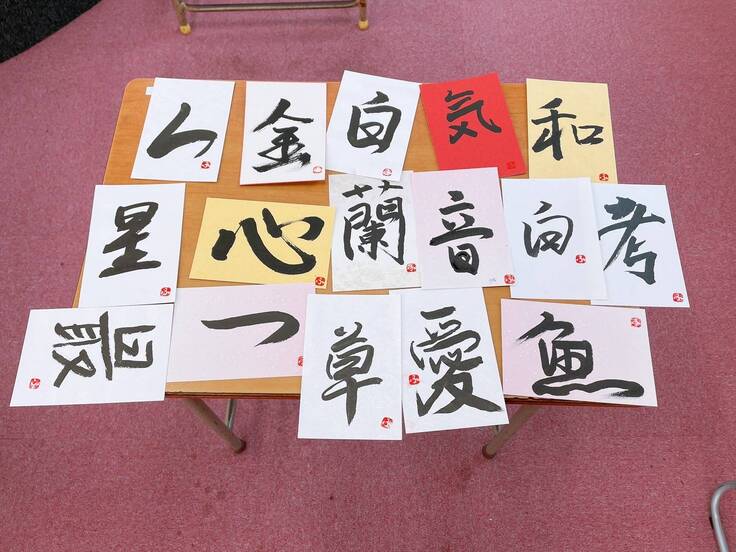 金 白 気 和
星 心 蘭 音 白 考
最 つ 草 愛 魚